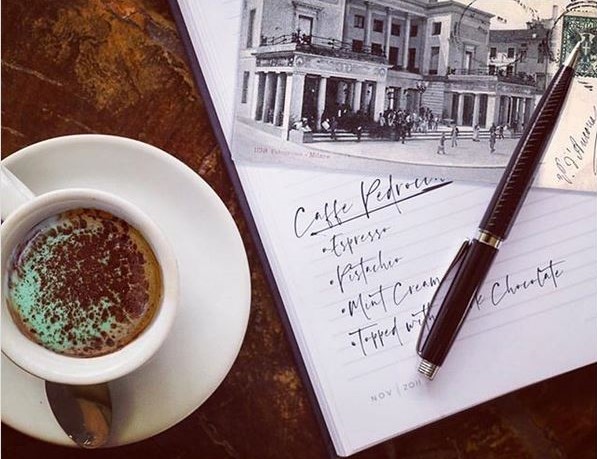 Caffe Pedrocc
•Espresso
•Pistachio
•Mint Cream
•Topped with k Chocolate
NOV | 2011